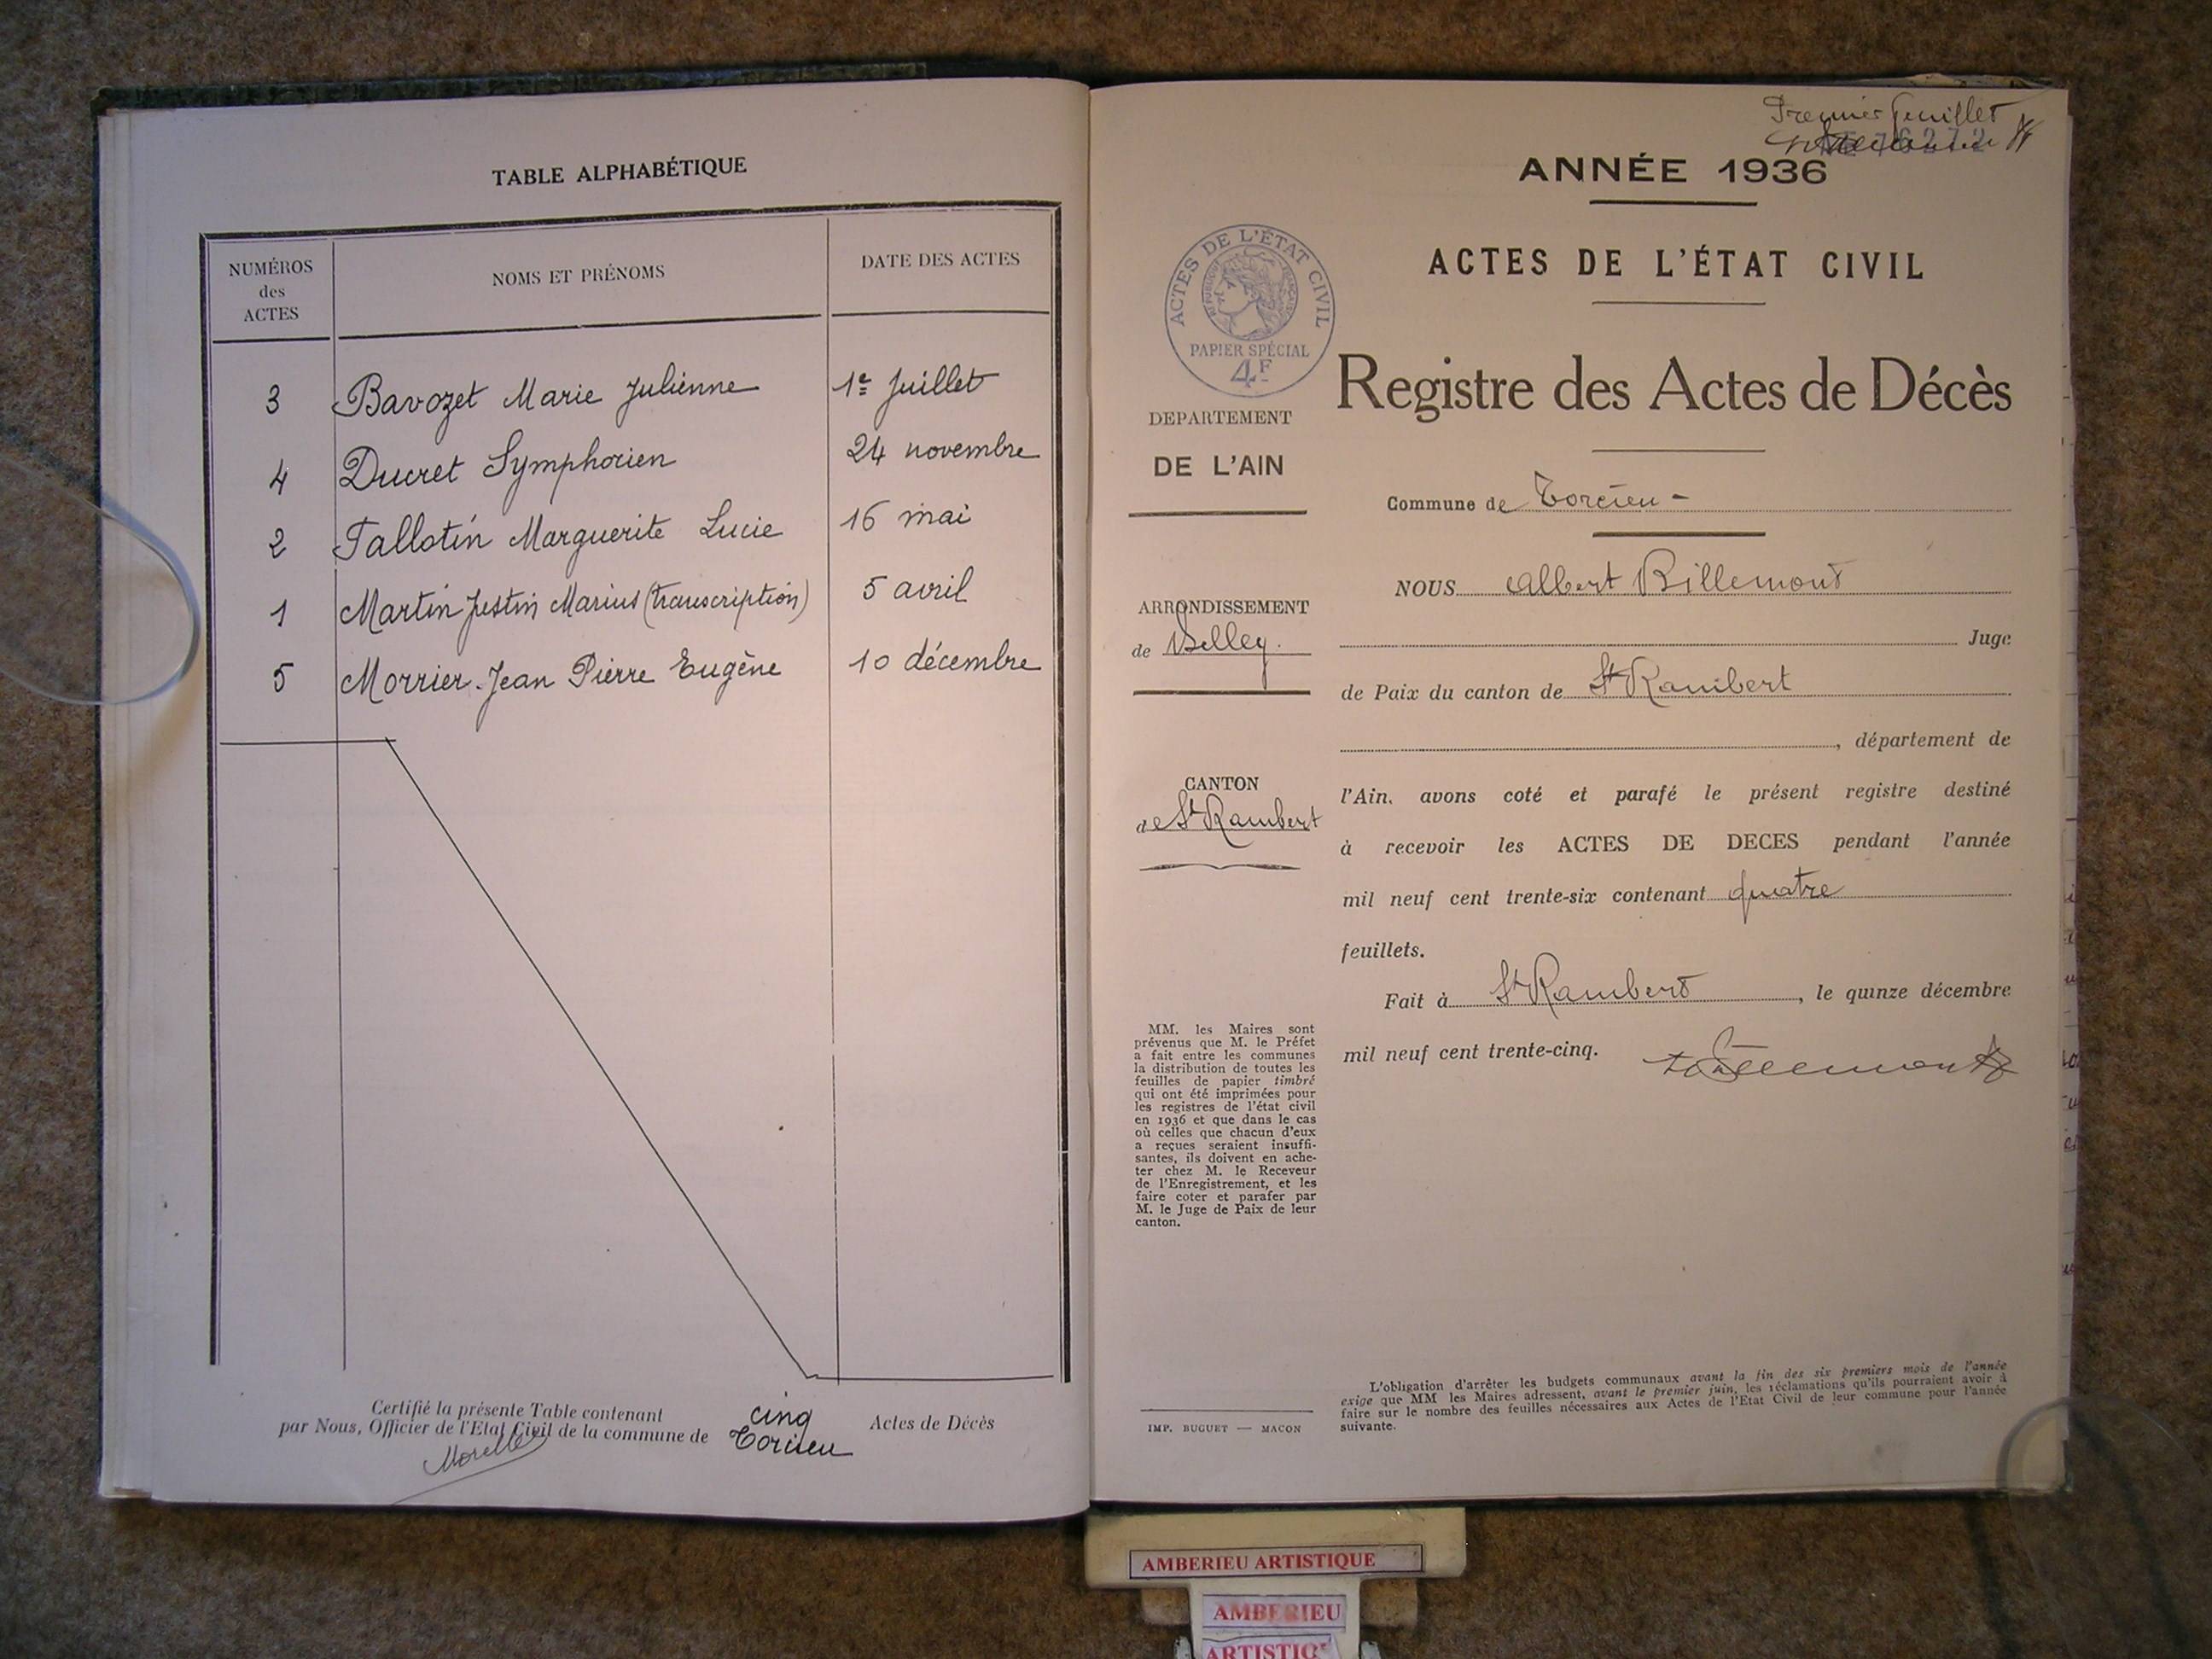 TABLE ALPHABÉTIQUE
NUMÉROS
des
ACTES
NOMS ET PRÉNOMS
DATE DES ACTES
3 Bavozet Marie Julienne 1e Juillet
4 Ducret Symphorien 24 novembre
2 Tallotin Marguerite Lucie 16 mai
1 Martin Justin Marius (transcription) 5 avril
5 Morrier Jean Pierre Eugène 10 décembre
Certifié la présente Table contenant cinq Actes de Décès
par Nous, Officier de l'Etat Civil de la commune de Torcieu
Premier feuillet
ANNÉE 1936
ACTES DE L'ÉTAT CIVIL
Registre des Actes de Décès
Commune de Torcieu -
NOUS Albert Billemont
Juge
de Paix du canton de St Rambert
, département de
l'Ain, avons coté et parafé le présent registre destiné
à recevoir les ACTES DE DECES pendant l'année
mil neuf cent trente-six contenant quatre
feuillets.
Fait à St Rambert, le quinze décembre
mil neuf cent trente-cinq.
L'obligation d'arrêter les budgets communaux avant la fin des six premiers mois de l'année
exige que MM les Maires adressent, avant le premier juin, les réclamations qu'ils pourraient avoir à
faire sur le nombre des feuilles nécessaires aux Actes de l'Etat Civil de leur commune pour l'année
suivante.
ACTES DE L'ÉTAT CIVIL
RÉPUBLIQUE FRANÇAISE
PAPIER SPÉCIAL
4F
DEPARTEMENT
DE L'AIN
ARRONDISSEMENT
de Belley.
CANTON
de St Rambert
MM. les Maires sont
prévenus que M. le Préfet
a fait entre les communes
la distribution de toutes les
feuilles de papier timbré
qui ont été imprimées pour
les registres de l'état civil
en 1936 et que dans le cas
où celles que chacun d'eux
a reçues seraient insuffi-
santes, ils doivent en ache-
ter chez M. le Receveur
de l'Enregistrement, et les
faire coter et parafer par
M. le Juge de Paix de leur
canton.
IMP. BUGUET — MACON
AMBERIEU ARTISTIQUE
AMBERIEU
ARTISTIQ